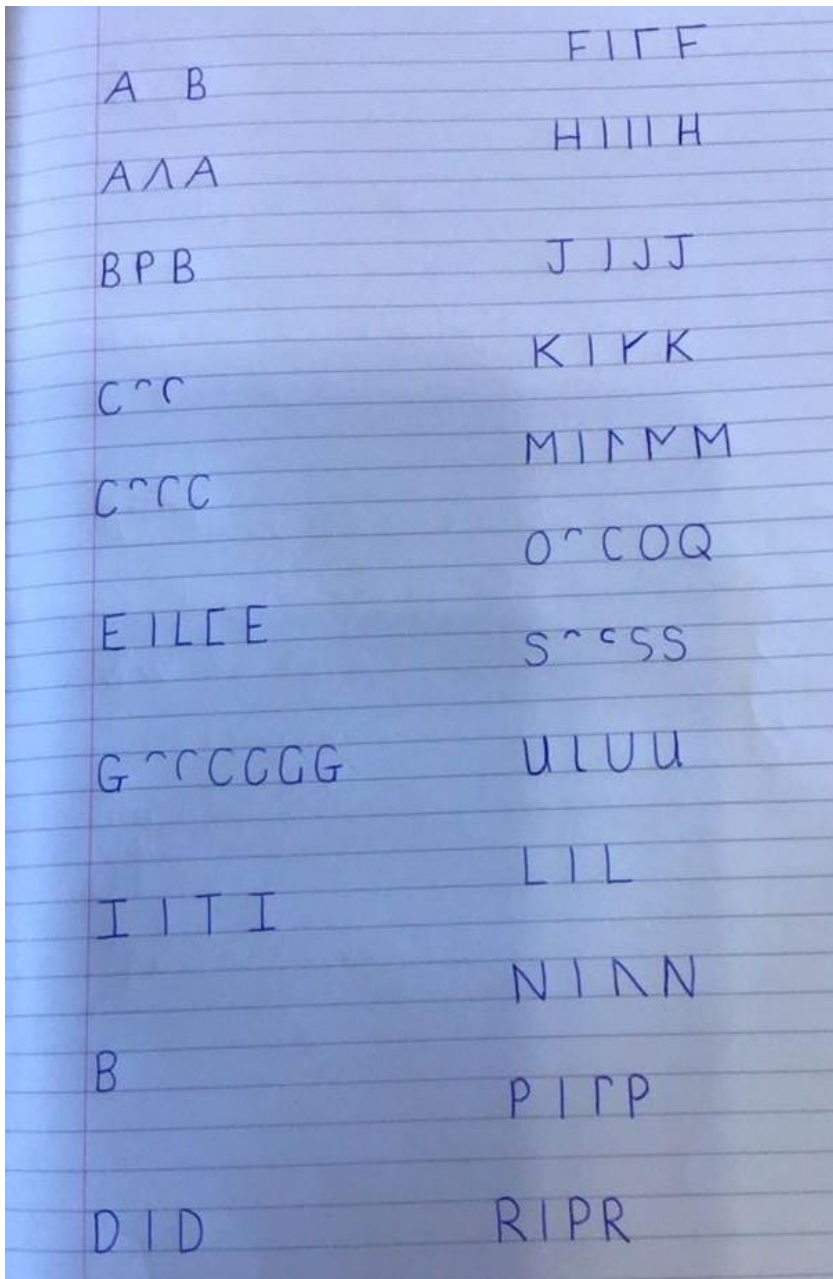 A B
A Λ A
B P B
C ⌒ Ր
C ⌒ Ր C
E I L [ E
G ⌒ Ր C C G G
I I T I
B
D I D
F I Γ F
H I I I H
J I J J
K I K
M I M
O ⌒ C O Q
S ⌒ c S S
U l U U
L I L
N I Λ N
P I Γ P
R I P R